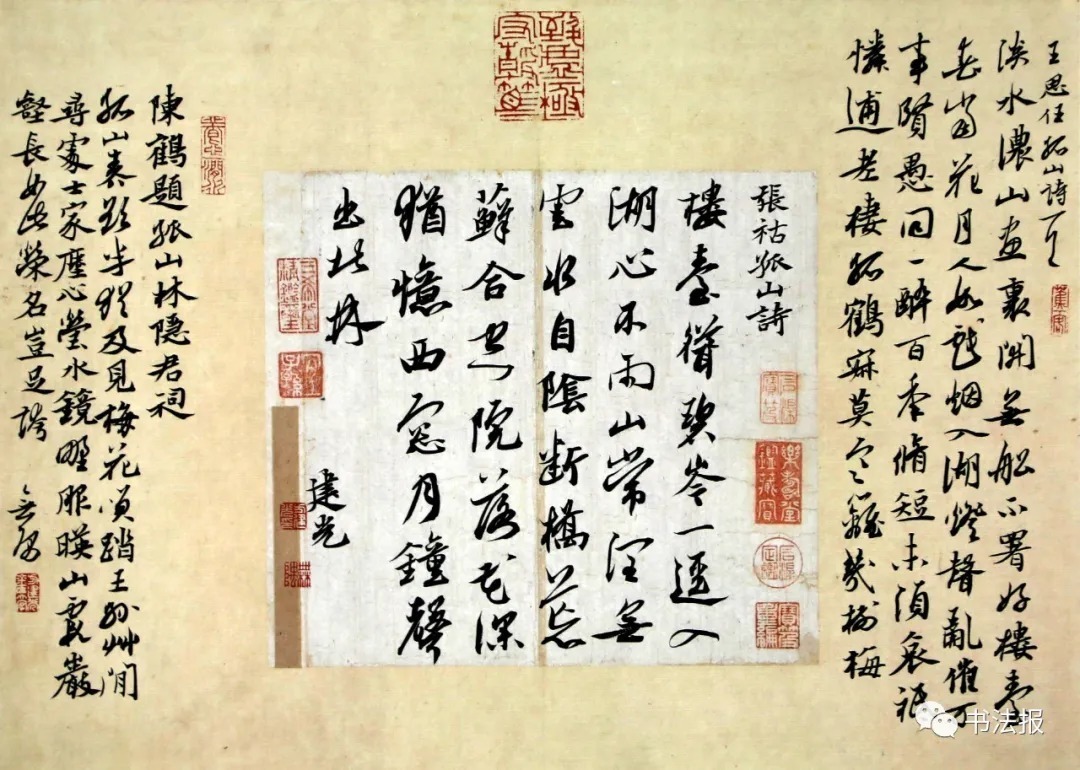 王思任孤山詩一首
淡水濃山畫裏開無船不署好樓臺
春當花月人如戲烟入湖燈聲亂催万
事賢愚同一醉百年脩短未須哀祇
憐逋老棲孤鶴寂莫空籬幾樹梅
張祜孤山詩
樓臺聳碧岑一逕入
湖心不雨山常潤無
雲水自陰斷橋荒
蘚合空院落花深
猶憶西窗月鐘聲
出北林
建光
陳鶴題孤山林隱君祠
孤山春欲半猶及見梅花笑踏王孫艸閒
尋處士家塵心瑩水鏡野服映山霞巖
壑長如此榮名豈足誇
樂壽堂鑑藏寶
书法报